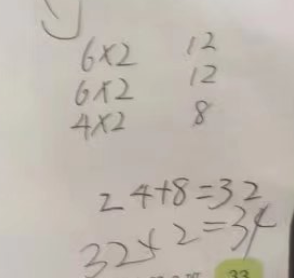 6×2 12
6×2 12
4×2 8
24+8=32
32+2=34
33